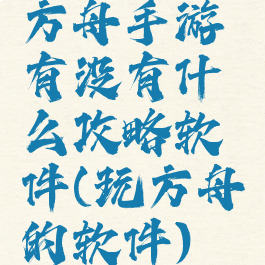 方舟手游
有没有什
么攻略软
件(玩方舟
的软件)